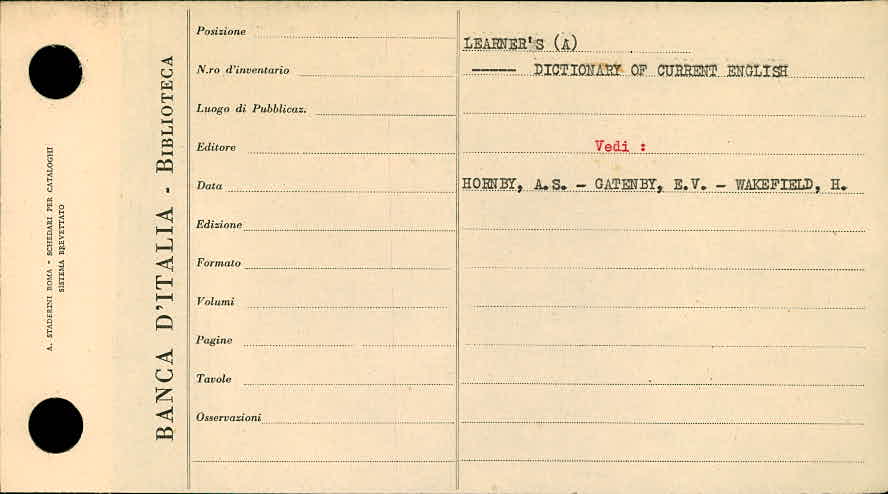 A. STADERINI ROMA - SCHEDARI PER CATALOGHI
SISTEMA BREVETTATO
BANCA D'ITALIA - BIBLIOTECA
Posizione
N.ro d'inventario
Luogo di Pubblicaz.
Editore
Data
Edizione
Formato
Volumi
Pagine
Tavole
Osservazioni
LEARNER'S (A)
----- DICTIONARY OF CURRENT ENGLISH
Vedi :
HORNBY, A.S. - GATENBY, E.V. - WAKEFIELD, H.